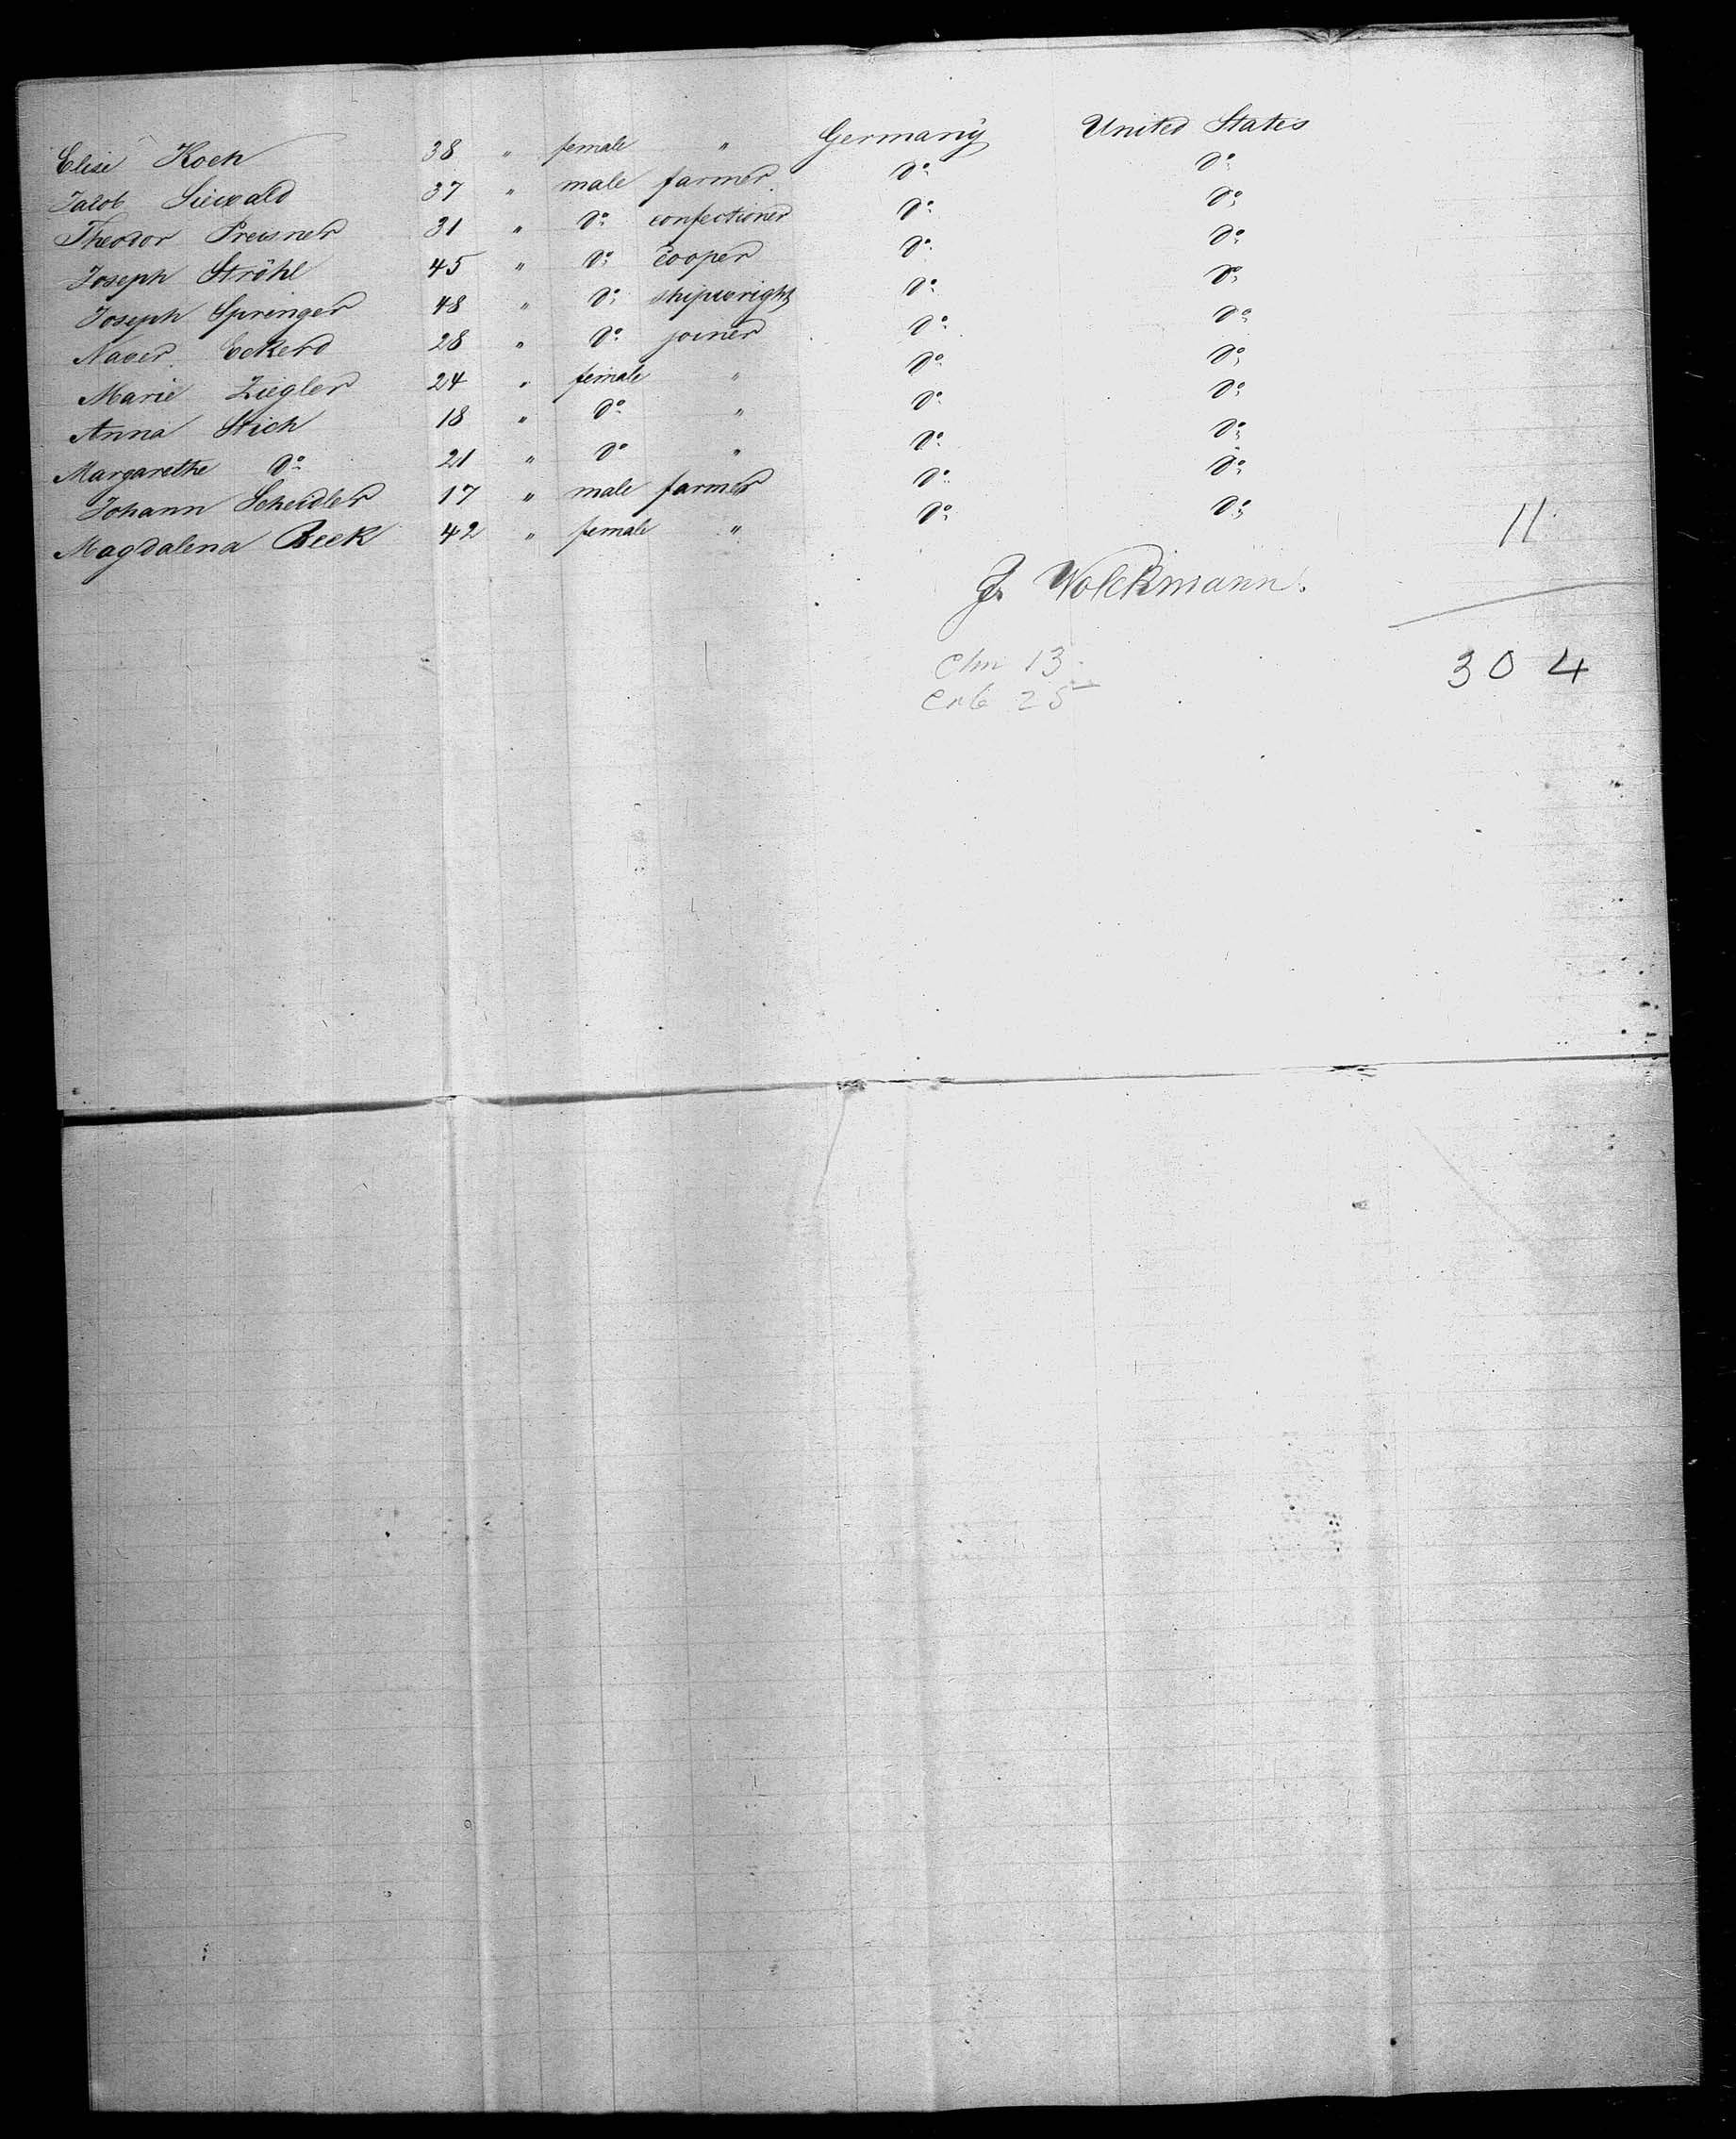 Elise Koch 38 " female " Germany United States
Jacob Siewald 37 " male farmer do do
Theodor Preusner 31 " do confectioner do do
Joseph Ströhl 45 " do cooper do do
Joseph Springer 48 " do shipwright do do
Xaver Eckerd 28 " do joiner do do
Marie Ziegler 24 " female " do do
Anna Stich 18 " do " do do
Margarethe do 21 " do " do do
Johann Scheidler 17 " male farmer do do
Magdalena Beck 42 " female " do do
11
J. Volckmann.
304
13
25